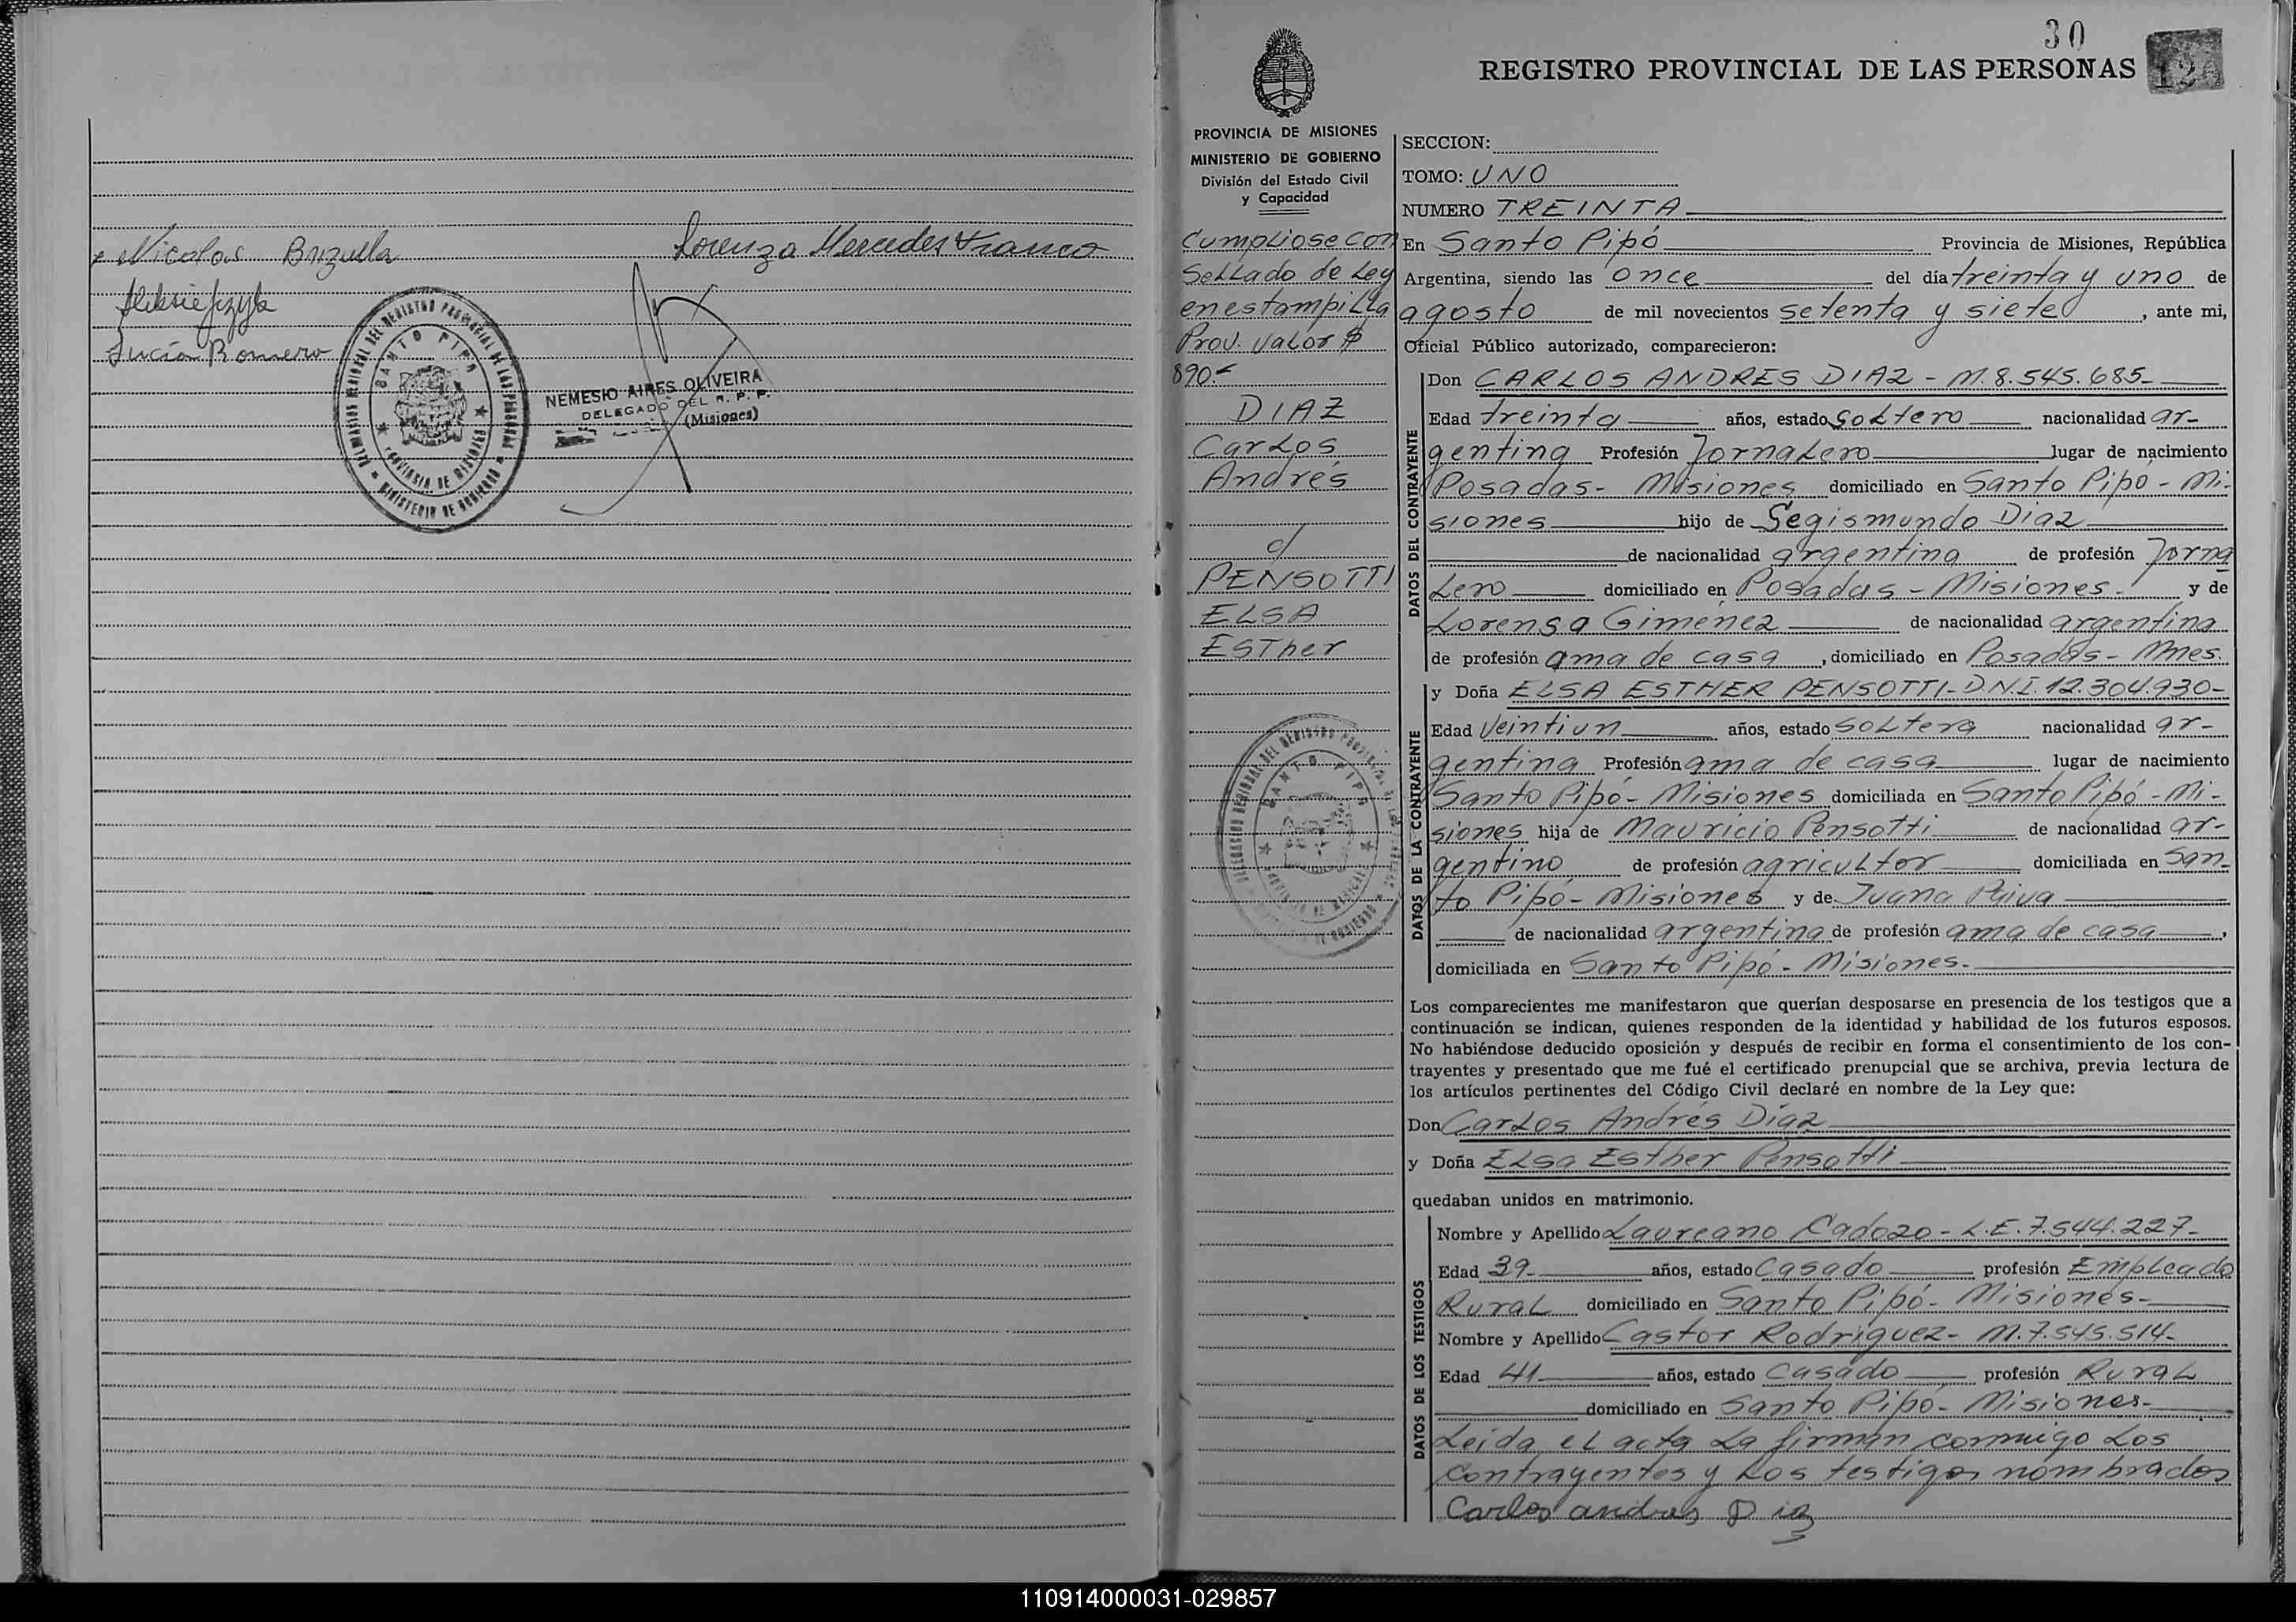 Nicolas Brizuela
Lorenza Mercedes Franco
Lucía Romero
DELEGACION REGIONAL DEL REGISTRO PROVINCIAL DE LAS PERSONAS
SANTO PIPO
PROVINCIA DE MISIONES
MINISTERIO DE GOBIERNO
NEMESIO AIRES OLIVEIRA
DELEGADO DEL R. P. P.
(Misiones)
30
REGISTRO PROVINCIAL DE LAS PERSONAS
PROVINCIA DE MISIONES
MINISTERIO DE GOBIERNO
División del Estado Civil
y Capacidad
Cumpliose con
Sellado de Ley
en estampilla
Prov. valor $
890.-
DIAZ
Carlos
Andrés
c/
PENSOTTI
ELSA
ESTher
SECCION:
TOMO: UNO
NUMERO TREINTA
En Santo Pipó Provincia de Misiones, República
Argentina, siendo las once del día treinta y uno de
agosto de mil novecientos setenta y siete, ante mi,
Oficial Público autorizado, comparecieron:
DATOS DEL CONTRAYENTE
Don CARLOS ANDRES DIAZ - M. 8.545.685-
Edad treinta años, estado soltero nacionalidad ar-
gentina Profesión Jornalero lugar de nacimiento
Posadas - Misiones domiciliado en Santo Pipó - Mi-
siones hijo de Segismundo Diaz
de nacionalidad argentina de profesión Jorna
lero domiciliado en Posadas - Misiones. y de
Lorensa Giménez de nacionalidad argentina
de profesión ama de casa, domiciliado en Posadas - Mnes.
DATOS DE LA CONTRAYENTE
y Doña ELSA ESTHER PENSOTTI - D.N.I. 12.304.930-
Edad Veintiun años, estado soltera nacionalidad ar-
gentina Profesión ama de casa lugar de nacimiento
Santo Pipó - Misiones domiciliada en Santo Pipó - Mi-
siones hija de Mauricio Pensotti de nacionalidad ar-
gentino de profesión agricultor domiciliada en San-
to Pipó - Misiones y de Juana Paiva
de nacionalidad argentina de profesión ama de casa,
domiciliada en Santo Pipó - Misiones.
Los comparecientes me manifestaron que querían desposarse en presencia de los testigos que a
continuación se indican, quienes responden de la identidad y habilidad de los futuros esposos.
No habiéndose deducido oposición y después de recibir en forma el consentimiento de los con-
trayentes y presentado que me fué el certificado prenupcial que se archiva, previa lectura de
los artículos pertinentes del Código Civil declaré en nombre de la Ley que:
Don Carlos Andrés Díaz
y Doña Elsa Esther Pensotti
quedaban unidos en matrimonio.
DATOS DE LOS TESTIGOS
Nombre y Apellido Laureano Cadozo - L.E. 7.544.227-
Edad 39- años, estado Casado profesión Empleado
Rural domiciliado en Santo Pipó - Misiones-
Nombre y Apellido Castor Rodriguez - M. 7.545.514-
Edad 41 años, estado Casado profesión Rural
domiciliado en Santo Pipó - Misiones-
Leida el acta la firman conmigo los
contrayentes y los testigos nombrados
Carlos andres Diaz
110914000031-029857